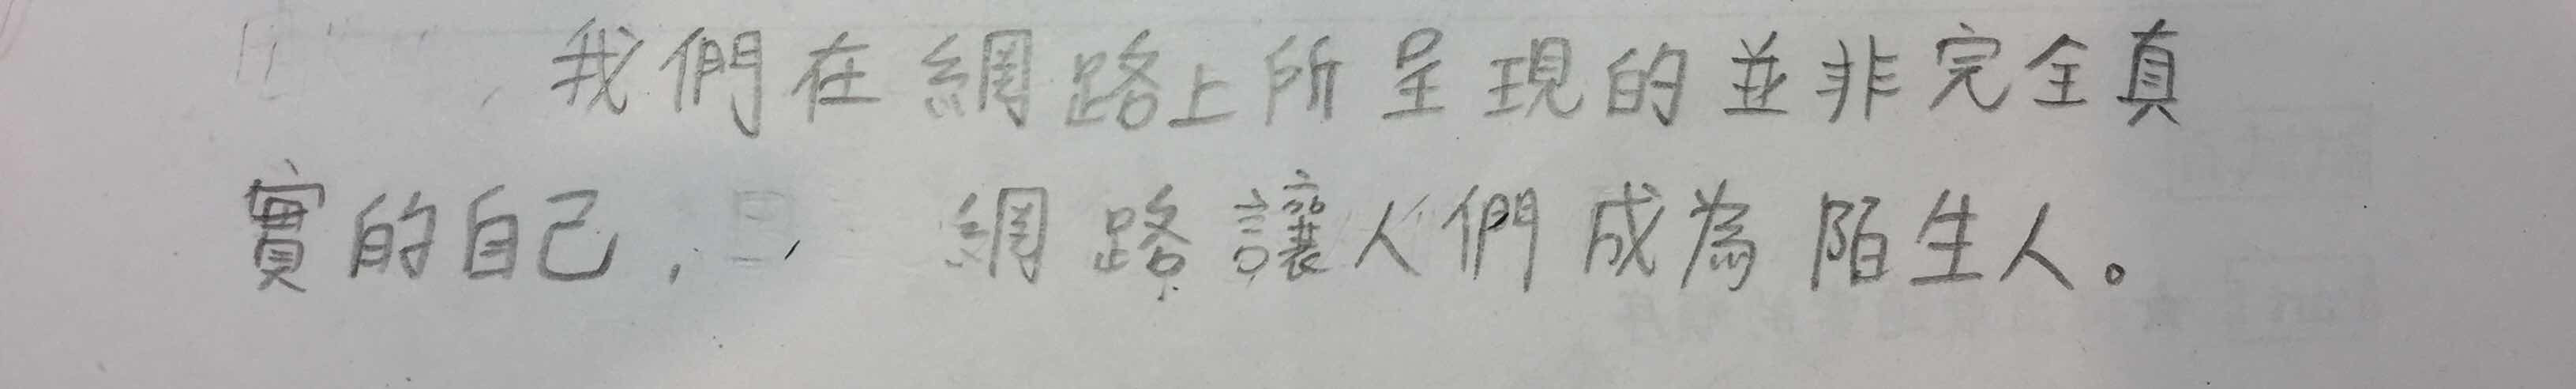 我們在網路上所呈現的並非完全真
實的自己，網路讓人們成為陌生人。